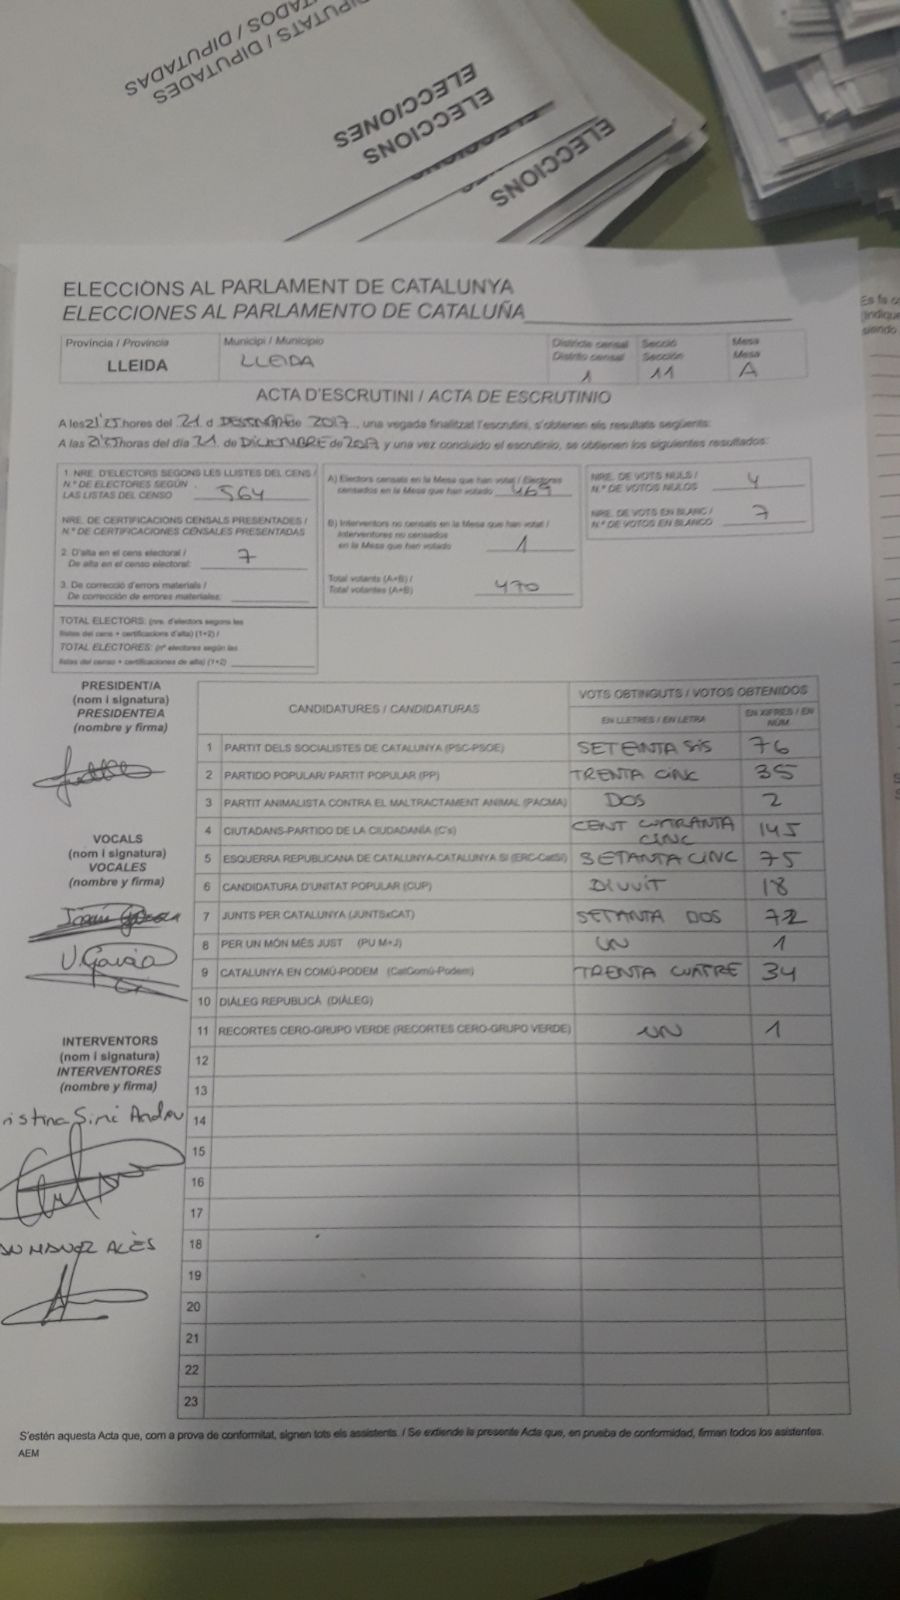 DIPUTATS / DIPUTADES
DIPUTADOS / DIPUTADAS
ELECCIONS
ELECCIONES
ELECCIONS
ELECCIONS AL PARLAMENT DE CATALUNYA
ELECCIONES AL PARLAMENTO DE CATALUÑA
Província / Provincia Municipi / Municipio Districte censal Secció Mesa
Distrito censal Sección Mesa
LLEIDA LLEIDA 1 11 A
ACTA D'ESCRUTINI / ACTA DE ESCRUTINIO
A les 21'25 hores del 21 d DESEMBRE de 2017, una vegada finalitzat l'escrutini, s'obtenen els resultats següents:
A las 21'25 horas del día 21 de DICIEMBRE de 2017 y una vez concluido el escrutinio, se obtienen los siguientes resultados:
1. NRE. D'ELECTORS SEGONS LES LLISTES DEL CENS /
N.º DE ELECTORES SEGÚN
LAS LISTAS DEL CENSO 564
NRE. DE CERTIFICACIONS CENSALS PRESENTADES /
N.º DE CERTIFICACIONES CENSALES PRESENTADAS
2. D'alta en el cens electoral /
De alta en el censo electoral: 7
3. De correcció d'errors materials /
De corrección de errores materiales:
TOTAL ELECTORS: (nre. d'electors segons les
llistes del cens + certificacions d'alta) (1+2) /
TOTAL ELECTORES: (nº electores según las
listas del censo + certificaciones de alta) (1+2)
A) Electors censats en la Mesa que han votat / Electores
censados en la Mesa que han votado 469
B) Interventors no censats en la Mesa que han votat /
Interventores no censados
en la Mesa que han votado 1
Total votants (A+B) /
Total votantes (A+B) 470
NRE. DE VOTS NULS /
N.º DE VOTOS NULOS 4
NRE. DE VOTS EN BLANC /
N.º DE VOTOS EN BLANCO 7
PRESIDENT/A
(nom i signatura)
PRESIDENTE/A
(nombre y firma)
VOCALS
(nom i signatura)
VOCALES
(nombre y firma)
INTERVENTORS
(nom i signatura)
INTERVENTORES
(nombre y firma)
CANDIDATURES / CANDIDATURAS VOTS OBTINGUTS / VOTOS OBTENIDOS
EN LLETRES / EN LETRA EN XIFRES / EN NÚM.
1 PARTIT DELS SOCIALISTES DE CATALUNYA (PSC-PSOE) SETEINTA SIS 76
2 PARTIDO POPULAR/ PARTIT POPULAR (PP) TRENTA CINC 35
3 PARTIT ANIMALISTA CONTRA EL MALTRACTAMENT ANIMAL (PACMA) DOS 2
4 CIUTADANS-PARTIDO DE LA CIUDADANÍA (C's) CENT CUARANTA CINC 145
5 ESQUERRA REPUBLICANA DE CATALUNYA-CATALUNYA SÍ (ERC-CatSí) SETANTA CINC 75
6 CANDIDATURA D'UNITAT POPULAR (CUP) DIVUIT 18
7 JUNTS PER CATALUNYA (JUNTSxCAT) SETANTA DOS 72
8 PER UN MÓN MÉS JUST (PU M+J) UN 1
9 CATALUNYA EN COMÚ-PODEM (CatComú-Podem) TRENTA CUATRE 34
10 DIÀLEG REPUBLICÀ (DIÀLEG)
11 RECORTES CERO-GRUPO VERDE (RECORTES CERO-GRUPO VERDE) UN 1
12
13
14
15
16
17
18
19
20
21
22
23
S'estén aquesta Acta que, com a prova de conformitat, signen tots els assistents. / Se extiende la presente Acta que, en prueba de conformidad, firman todos los asistentes.
AEM